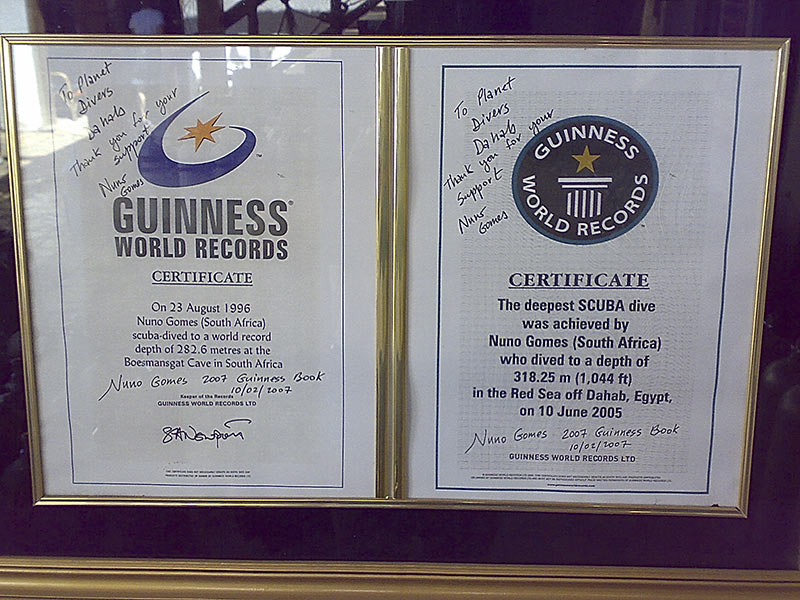 To Planet
Divers
Dahab
Thank you for your
support
Nuno
Gomes
™
GUINNESS®
WORLD RECORDS
CERTIFICATE
On 23 August 1996
Nuno Gomes (South Africa)
scuba-dived to a world record
depth of 282.6 metres at the
Boesmansgat Cave in South Africa
Nuno Gomes 2007 Guinness Book
10/02/2007
Keeper of the Records
GUINNESS WORLD RECORDS LTD
To Planet
Divers
Dahab
Thank you for your
support
Nuno
Gomes
GUINNESS
WORLD RECORDS
CERTIFICATE
The deepest SCUBA dive
was achieved by
Nuno Gomes (South Africa)
who dived to a depth of
318.25 m (1,044 ft)
in the Red Sea off Dahab, Egypt,
on 10 June 2005
Nuno Gomes 2007 Guinness Book
10/02/2007
GUINNESS WORLD RECORDS LTD